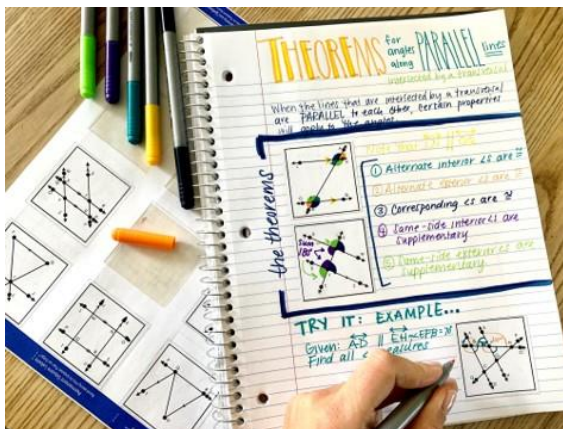 THEOREMS for angles along PARALLEL lines
intersected by a transversal
When the lines that are intersected by a transversal
are PARALLEL to each other, certain properties
will apply to the angles.
the theorems
① Alternate interior ∠s are ≅
② Alternate exterior ∠s are ≅
③ Corresponding ∠s are ≅
④ Same-side interior ∠s are
supplementary
⑤ Same-side exterior ∠s are
supplementary
180°
TRY IT: EXAMPLE...
Given: AD || EH
Find all